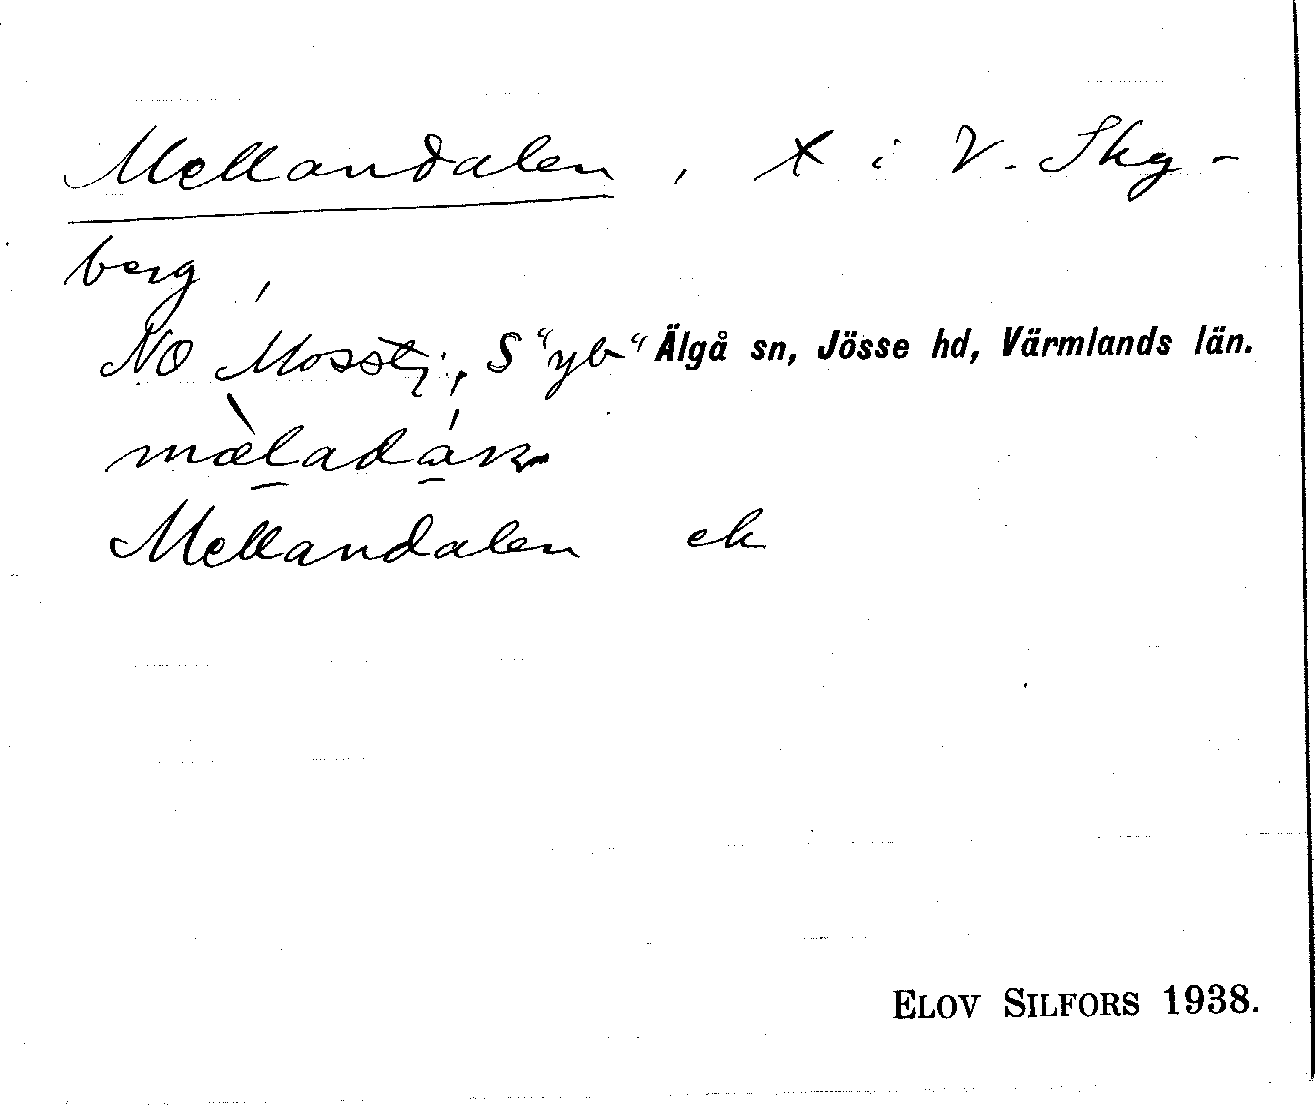 Mellandalen, x i V. Sky-
berg,
NO Mosstj., S "yb" Älgå sn, Jösse hd, Värmlands län.
Mellandalen ek
ELOV SILFORS 1938.